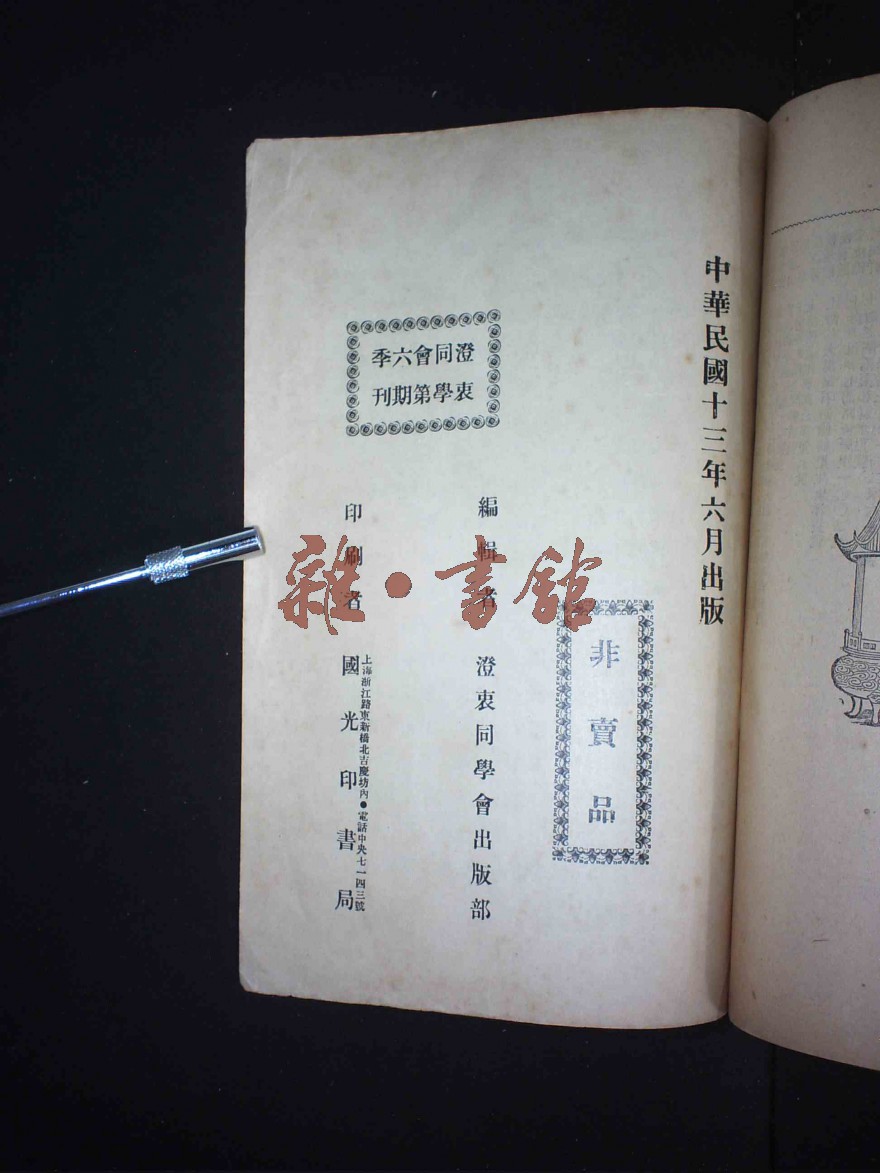 中華民國十三年六月出版
非賣品
澄衷同學會第六期季刊
編輯者 澄衷同學會出版部
印刷者 國光印書局
上海浙江路東新橋北吉慶坊內●電話中央七一四三號
雜·書館